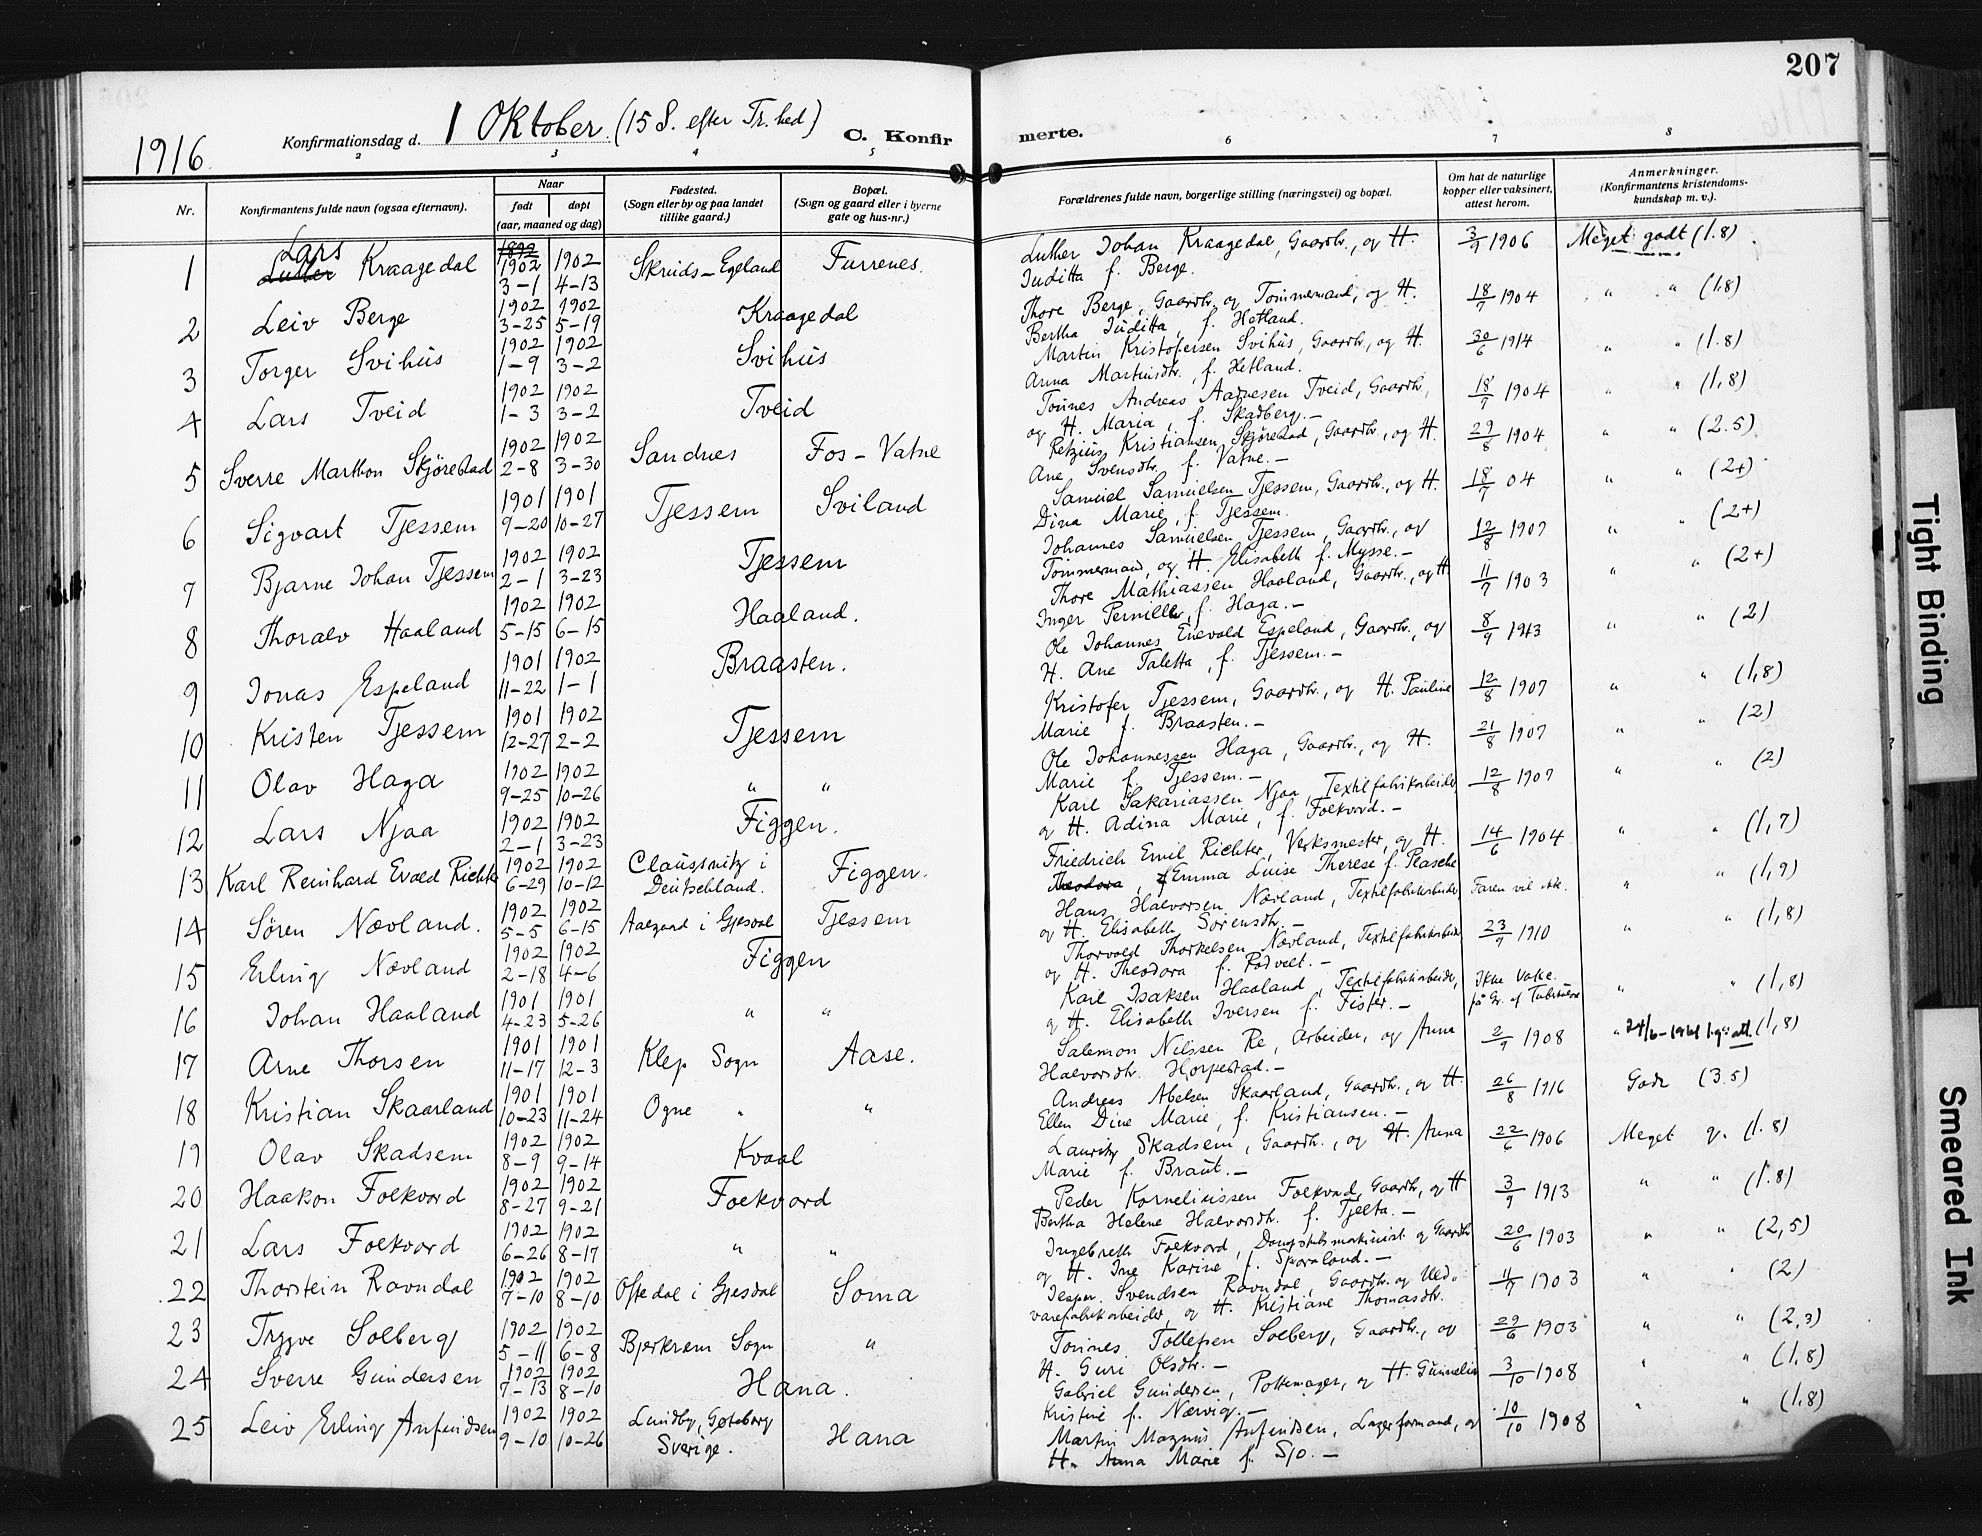 207
1916. Konfirmationsdag d. 1 Oktober. (15 S. efter Tr.hed) C. Konfirmerte.
2 3 4 5 6 7 8
Nr. Konfirmantens fulde navn (ogsaa efternavn). Naar født døpt (aar, maaned og dag) Fødested. (Sogn eller by og paa landet tillike gaard.) Bopæl. (Sogn og gaard eller i byerne gate og hus-nr.) Forældrenes fulde navn, borgerlige stilling (næringsvei) og bopæl. Om hat de naturlige kopper eller vaksinert, attest herom. Anmerkninger. (Konfirmantens kristendoms-kundskap m. v.).
1 Lars Kraagedal 1902 3-1 1902 4-13 Skruds-Egeland Furrenes. Luther Johan Kraagedal, Gaardbr., og H. 3/9 1906 Meget godt (1.8)
Juditta f. Berge.
2 Leiv Berge 1902 3-25 1902 5-19 Kraagedal Thore Berge, Gaardbr. og Tømmermand, og H. 18/7 1904 " " (1.8)
Bertha Juditta, f. Hetland.
3 Torger Svihus 1902 1-9 1902 3-2 Svihus Martin Kristofersen Svihus, Gaardbr., og H. 30/6 1914 " " (1.8)
Anna Martinsdtr. f. Hetland.
4 Lars Tveid 1902 1-3 1902 3-2 Tveid Tønnes Andreas Aanesen Tveid, Gaardbr., 18/7 1904 " " (1,8)
og H. Maria, f. Skadberg.-
5 Sverre Marthon Skjørestad 1902 2-8 1902 3-30 Sandnes Fos-Vatne Retzius Kristiansen Skjørestad, Gaardbr., og H. 29/8 1904 " " (2.5)
Ane Svensdtr. f. Vatne.-
6 Sigvart Tjessem 1901 9-20 1901 10-27 Tjessem Sviland Samuel Samuelsen Tjessem, Gaardbr., og H. 18/7 04 " " (2+)
Dina Marie, f. Tjessem.
7 Bjarne Johan Tjessem 1902 2-1 1902 3-23 Tjessem Johannes Samuelsen Tjessem, Gaardbr., og 12/8 1907 " " (2+)
Tømmermand, og H. Elisabeth f. Mysse.-
8 Thoralv Haaland 1902 5-15 1902 6-15 Haaland. Thore Mathiassen Haaland, Gaardbr., og H. 11/7 1903 " " (2+)
Inger Pernille, f. Haga.-
9 Jonas Espeland 1901 11-22 1902 1-1 Braasten. Ole Johannes Enevald Espeland, Gaardbr., og 8/9 1913 " " (2)
H. Ane Taletta, f. Tjessem.-
10 Kristen Tjessem 1901 12-27 1902 2-2 Tjessem Kristofer Tjessem, Gaardbr., og H. Pauline 12/8 1907 " " (1,8)
Marie f. Braasten.-
11 Olav Haga 1902 9-25 1902 10-26 " " Ole Johannessen Haga, Gaardbr., og H. 21/8 1907 " " (2)
Marie f. Tjessem.-
12 Lars Njaa 1902 2-1 1902 3-23 Figgen. Karl Sakariassen Njaa, Textilfabrikarbeider 12/8 1907 " " (2)
og H. Adina Marie, f. Folkvord.-
13 Karl Reinhard Evald Richter 1902 6-29 1902 10-12 Claussnitz i Deutschland. Figgen. Friedrich Emil Richter, Verksmester, og H. 14/6 1904 " " (1,7)
Theodora, Emma Luise Therese f. Plasche
14 Søren Nævland. 1902 5-5 1902 6-15 Aalgaard i Gjesdal Tjessem Hans Halvorsen Nævland, Textilfabrikarbeider, Faren vil ikke. " " (1,9)
og H. Elisabeth Sørensdtr.-
15 Erling Nævland 1902 2-18 1902 4-6 Figgen Thorvald Thorkelsen Nævland, Textilfabrikarbeider, 23/9 1910 " " (1,8)
og H. Theodora f. Rodvelt.-
16 Johan Haaland 1901 4-23 1901 5-26 " " Karl Isaksen Haaland, Textilfabrikarbeider, Ikke vakc. på Gr. af Tuberkulose " " (1,8)
og H. Elisabeth Iversen f. Fister.-
17 Arne Thorsen 1901 11-17 1901 12-3 Klep Sogn Aase. Salemon Nilssen Re, Arbeider, og Anna 2/9 1908 " 24/6-1961 (1,8)
Halvorsdtr. Horpestad.-
18 Kristian Skaarland 1901 10-23 1901 11-24 Ogne " " Andreas Abelsen Skaarland, Gaardbr., og H. 26/8 1916 Godt (3.5)
Ellen Dine Marie, f. Kristiansen.-
19 Olav Skadsem 1902 8-9 1902 9-14 Kvaal Lauritz Skadsem, Gaardbr., og H. Anna 22/6 1906 Meget g. (1.8)
Marie f. Braut.-
20 Haakon Folkvord 1902 8-27 1902 9-21 Folkvord Peder Korneliussen Folkvord, Gaardbr., og H 3/9 1913 " " (1.8)
Bertha Helene Halvorsdtr. f. Tjelta.-
21 Lars Folkvord 1902 6-26 1902 8-17 " " Ingebreth Folkvord, Dampskibsmaskinist og Gaardbr 20/6 1903 " " (2,5)
og H. Ine Karine f. Sporaland.-
22 Thorstein Ravndal 1902 7-10 1902 8-10 Oftedal i Gjesdal Soma Jesper Svendsen Ravndal, Gaardbr. og Uld- 11/7 1903 " " (2)
varefabrikarbeider, og H. Kristiane Thomasdtr.
23 Trygve Solberg 1902 5-11 1902 6-8 Bjerkrem Sogn " Tønnes Tollefsen Solberg, Gaardbr., og 29/6 1903 " " (2,3)
H. Guri Olsdtr.-
24 Sverre Gundersen 1902 7-13 1902 8-10 Hana. Gabriel Gundersen, Pottemager, og H. Gunnelia 3/10 1908 " " (1,8)
Kristine f. Nærvig.-
25 Leiv Erling Anfindsen 1902 9-10 1902 10-26 Lundby, Gøteborg Sverige. Hana Martin Magnus Anfindsen, Lagerformand, og 10/10 1908 " " (1.8)
H. Anna Marie f. Sjo.-
Tight Binding
Smeared Ink